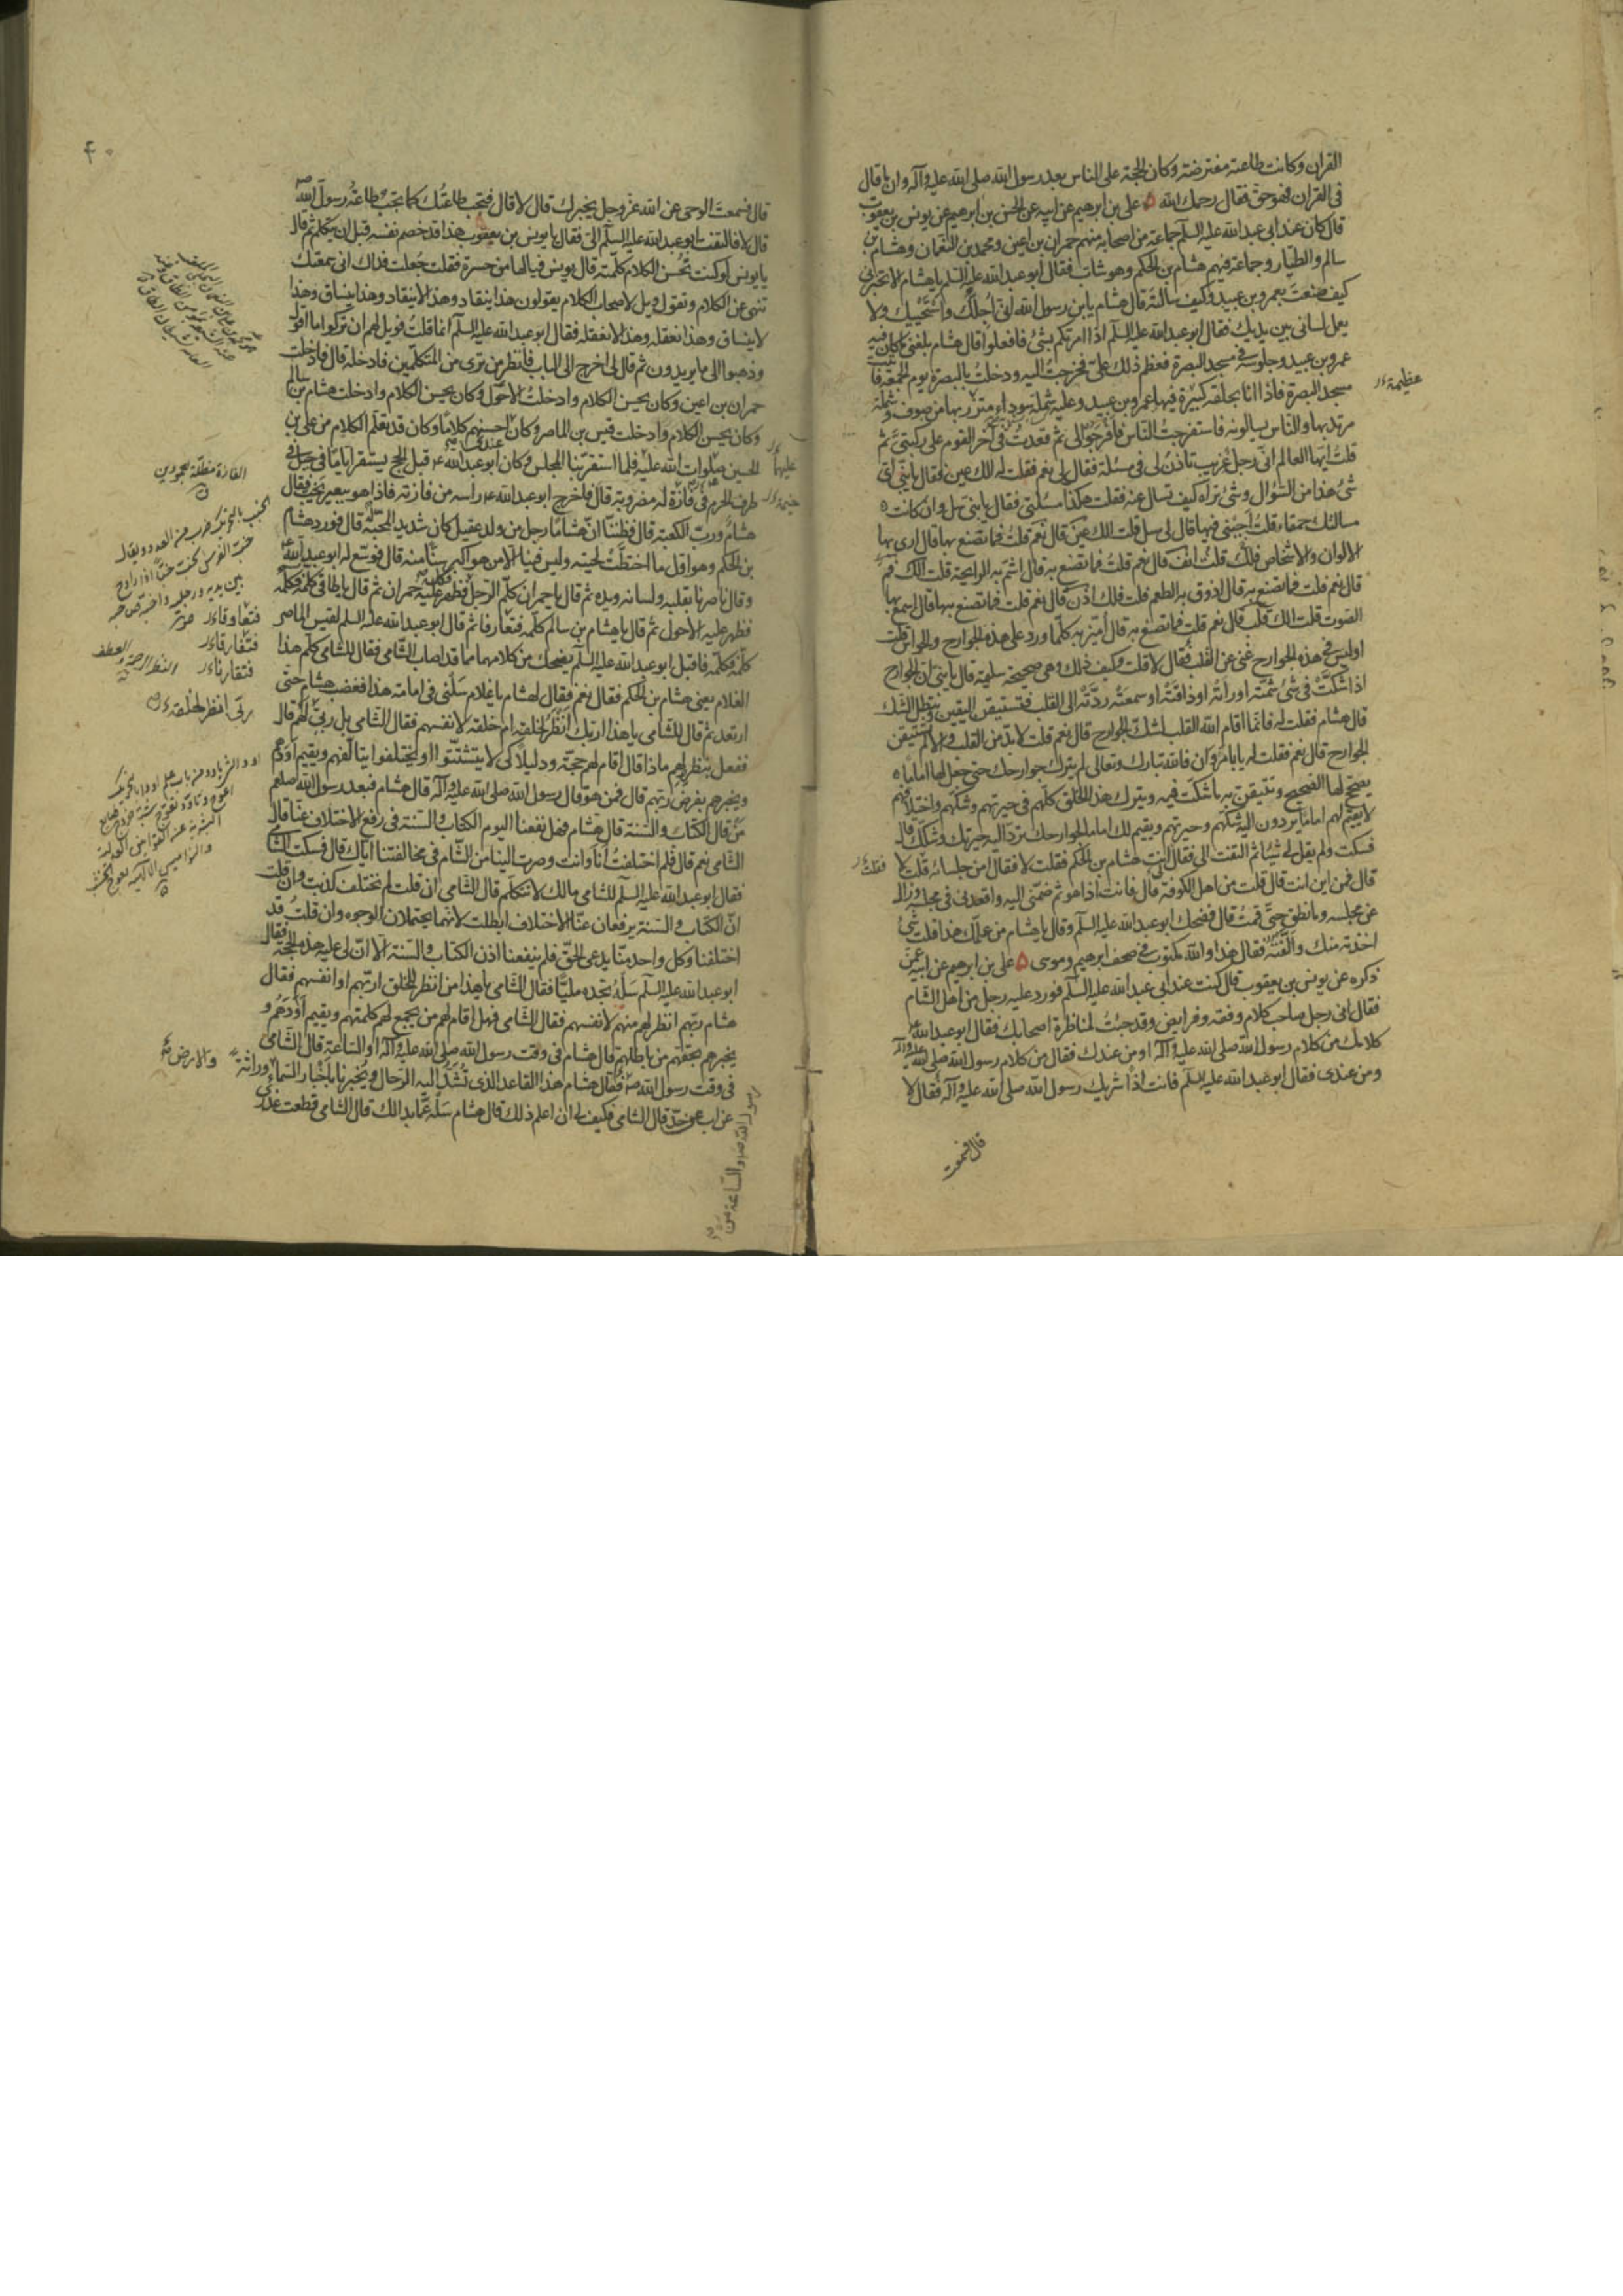 القران وكانت طاعته مفترضة وكان الحجة على الناس بعد رسول الله صلى الله عليه وآله وان ما قال
في القران فهو حق فقال رحمك الله ۵ على بن ابرهيم عن ابيه عن الحسن بن ابرهيم عن يونس بن يعقوب
قال كان عند ابى عبد الله عليه السلم جماعة من اصحابه منهم حمران بن اعين ومحمد بن النعمان وهشام بن
سالم والطيار وجماعة فيهم هشام بن الحكم وهو شاب فقال ابو عبد الله عليه السلم يا هشام الا تخبرنى
كيف صنعت بعمرو بن عبيد وكيف سالته قال هشام يا بن رسول الله انى اجلك واستحييك ولا
يعمل لسانى بين يديك فقال ابو عبد الله عليه السلم اذا امرتكم بشئ فافعلوا قال هشام بلغنى ما كان فيه
عمرو بن عبيد وجلوسه في مسجد البصرة فعظم ذلك على فخرجت اليه ودخلت بالبصرة يوم الجمعة فاتيت
مسجد البصرة فاذا انا بحلقة كبيرة فيها عمرو بن عبيد وعليه شملة سوداء متزر بها من صوف وشملة
عظيمة
مرتد بها والناس يسالونه فاستفرجت الناس فافرجوا لى ثم قعدت في آخر القوم على ركبتى ثم
قلت ايها العالم انى رجل غريب تاذن لى فى مسئلة فقال لى نعم فقلت له الك عين فقال يا بنى اى
شئ هذا من السؤال وشئ تراه كيف تسال عنه فقلت هكذا مسئلتى فقال يا بنى سل وان كانت
مسالتك حمقاء قلت اجبنى فيها قال لى سل قلت الك عين قال نعم قلت فما تصنع بها قال ارى بها
الالوان والاشخاص قلت فلك انف قال نعم قلت فما تصنع به قال اشم به الرايحة قلت الك فم
قال نعم قلت فما تصنع به قال اذوق به الطعم قلت فلك اذن قال نعم قلت فما تصنع بها قال اسمع بها
الصوت قلت الك قلب قال نعم قلت فما تصنع به قال اميز به كلما ورد على هذه الجوارح والحواس قلت
اوليس في هذه الجوارح غنى عن القلب فقال لا قلت وكيف ذلك وهى صحيحة سليمة قال يا بنى ان الجوارح
اذا شكت فى شئ شمته او راته او ذاقته او سمعته ردته الى القلب فتستيقن اليقين وتبطل الشك
قال هشام فقلت له فانما اقام الله القلب لشك الجوارح قال نعم قلت لابد من القلب والا لم تستيقن
الجوارح قال نعم فقلت له يا ابا مروان فالله تبارك وتعالى لم يترك جوارحك حتى جعل لها اماما
يصحح لها الصحيح وتتيقن به ما شكت فيه ويترك هذا الخلق كلهم فى حيرتهم وشكهم واختلافهم
لا يقيم لهم اماما يردون اليه شكهم وحيرتهم ويقيم لك اماما لجوارحك ترد اليه حيرتك وشكك قال
فسكت ولم يقل لى شيئا ثم التفت الى فقال انت هشام بن الحكم فقلت لا فقال امن جلسائه قلت لا
فقلت
قال فمن اين انت قال قلت من اهل الكوفة قال فانت اذا هو ثم ضمنى اليه واقعدنى فى مجلسه وزال
عن مجلسه وما نطق حتى قمت قال فضحك ابو عبد الله عليه السلم وقال يا هشام من علمك هذا قلت شئ
اخذته منك والفته فقال هذا والله مكتوب في صحف ابرهيم وموسى ۵ على بن ابرهيم عن ابيه عمن
ذكره عن يونس بن يعقوب قال كنت عند ابى عبد الله عليه السلم فورد عليه رجل من اهل الشام
فقال انى رجل صاحب كلام وفقه وفرايض وقد جئت لمناظرة اصحابك فقال ابو عبد الله
كلامك من كلام رسول الله صلى الله عليه وآله او من عندك فقال من كلام رسول الله صلى الله عليه وآله
ومن عندى فقال ابو عبد الله عليه السلم فانت اذا شريك رسول الله صلى الله عليه وآله فقال لا
قال فسمعت
۴۰
قال فسمعت الوحى عن الله عز وجل يخبرك قال لا قال فتجب طاعتك كما تجب طاعة رسول الله
قال لا فالتفت ابو عبد الله عليه السلم الى فقال يا يونس بن يعقوب هذا قد خصم نفسه قبل ان يتكلم ثم قال
يا يونس لو كنت تحسن الكلام كلمته قال يونس فيالها من حسرة فقلت جعلت فداك انى سمعتك
تنهى عن الكلام وتقول ويل لاصحاب الكلام يقولون هذا ينقاد وهذا لا ينقاد وهذا ينساق وهذا
لا ينساق وهذا نعقله وهذا لا نعقله فقال ابو عبد الله عليه السلم انما قلت فويل لهم ان تركوا ما اقول
وذهبوا الى ما يريدون ثم قال لى اخرج الى الباب فانظر من ترى من المتكلمين فادخله قال فادخلت
حمران بن اعين وكان يحسن الكلام وادخلت الاحول وكان يحسن الكلام وادخلت هشام بن سالم
وكان يحسن الكلام وادخلت قيس بن الماصر وكان احسنهم كلاما وكان قد تعلم الكلام من على بن
الحسين صلوات الله عليه فلما استقر بنا المجلس وكان ابو عبد الله قبل الحج يستقر اياما فى جبل في
طرف الحرم في فازة له مضروبة قال فاخرج ابو عبد الله راسه من فازته فاذا هو ببعير يخب فقال
هشام ورب الكعبة قال فظننا ان هشاما رجل من ولد عقيل كان شديد المحبة له قال فورد هشام
بن الحكم وهو اول ما اختطت لحيته وليس فينا الا من هو اكبر سنا منه قال فوسع له ابو عبد الله
وقال ناصرنا بقلبه ولسانه ويده ثم قال يا حمران كلم الرجل فظهر عليه حمران ثم قال يا طاقى كلمه فكلمه
فظهر عليه الاحول ثم قال يا هشام بن سالم كلمه فتعارفا ثم قال ابو عبد الله عليه السلم لقيس الماصر
كلمه فكلمه فاقبل ابو عبد الله عليه السلم يضحك من كلامهما مما قد اصاب الشامى فقال للشامى كلم هذا
الغلام يعنى هشام بن الحكم فقال نعم فقال لهشام يا غلام سلنى فى امامة هذا فغضب هشام حتى
ارتعد ثم قال للشامى يا هذا اربك انظر لخلقه ام خلقه لانفسهم فقال الشامى بل ربى انظر قال
ففعل بنظره لهم ماذا قال اقام لهم حجة ودليلا كى لا يتشتتوا او يختلفوا يتالفهم ويقيم اودهم
ويخبرهم بفرض ربهم قال فمن هو قال رسول الله صلى الله عليه وآله قال هشام فبعد رسول الله صلعم
من قال الكتاب والسنة قال هشام فهل نفعنا اليوم الكتاب والسنة فى رفع الاختلاف عنا قال
الشامى نعم قال فلم اختلفت انا وانت وصرت الينا من الشام فى مخالفتنا اياك قال فسكت الشامى
فقال ابو عبد الله عليه السلم للشامى مالك لا تتكلم قال الشامى ان قلت لم نختلف كذبت وان قلت
ان الكتاب والسنة يرفعان عنا الاختلاف ابطلت لانهما يحتملان الوجوه وان قلت قد
اختلفنا وكل واحد منا يدعى الحق فلم ينفعنا اذن الكتاب والسنة الا ان لى عليه هذه الحجة فقال
ابو عبد الله عليه السلم سله تجده مليا فقال الشامى يا هذا من انظر للخلق اربهم او انفسهم فقال
هشام ربهم انظر لهم منهم لانفسهم فقال الشامى فهل اقام لهم من يجمع لهم كلمتهم ويقيم اودهم و
يخبرهم بحقهم من باطلهم قال هشام فى وقت رسول الله صلى الله عليه وآله او الساعة قال الشامى
فى وقت رسول الله فقال هشام هذا القاعد الذى تشد اليه الرحال ويخبرنا باخبار السماء وراثة
والارض
عن اب عن جد قال الشامى فكيف لى ان اعلم ذلك قال هشام سله عما بدا لك قال الشامى قطعت عذرى
رسول الله والساعة من
عليهما
خيمة
الفازة مظلة بعمودين
فتعاوقا
فتفارقا